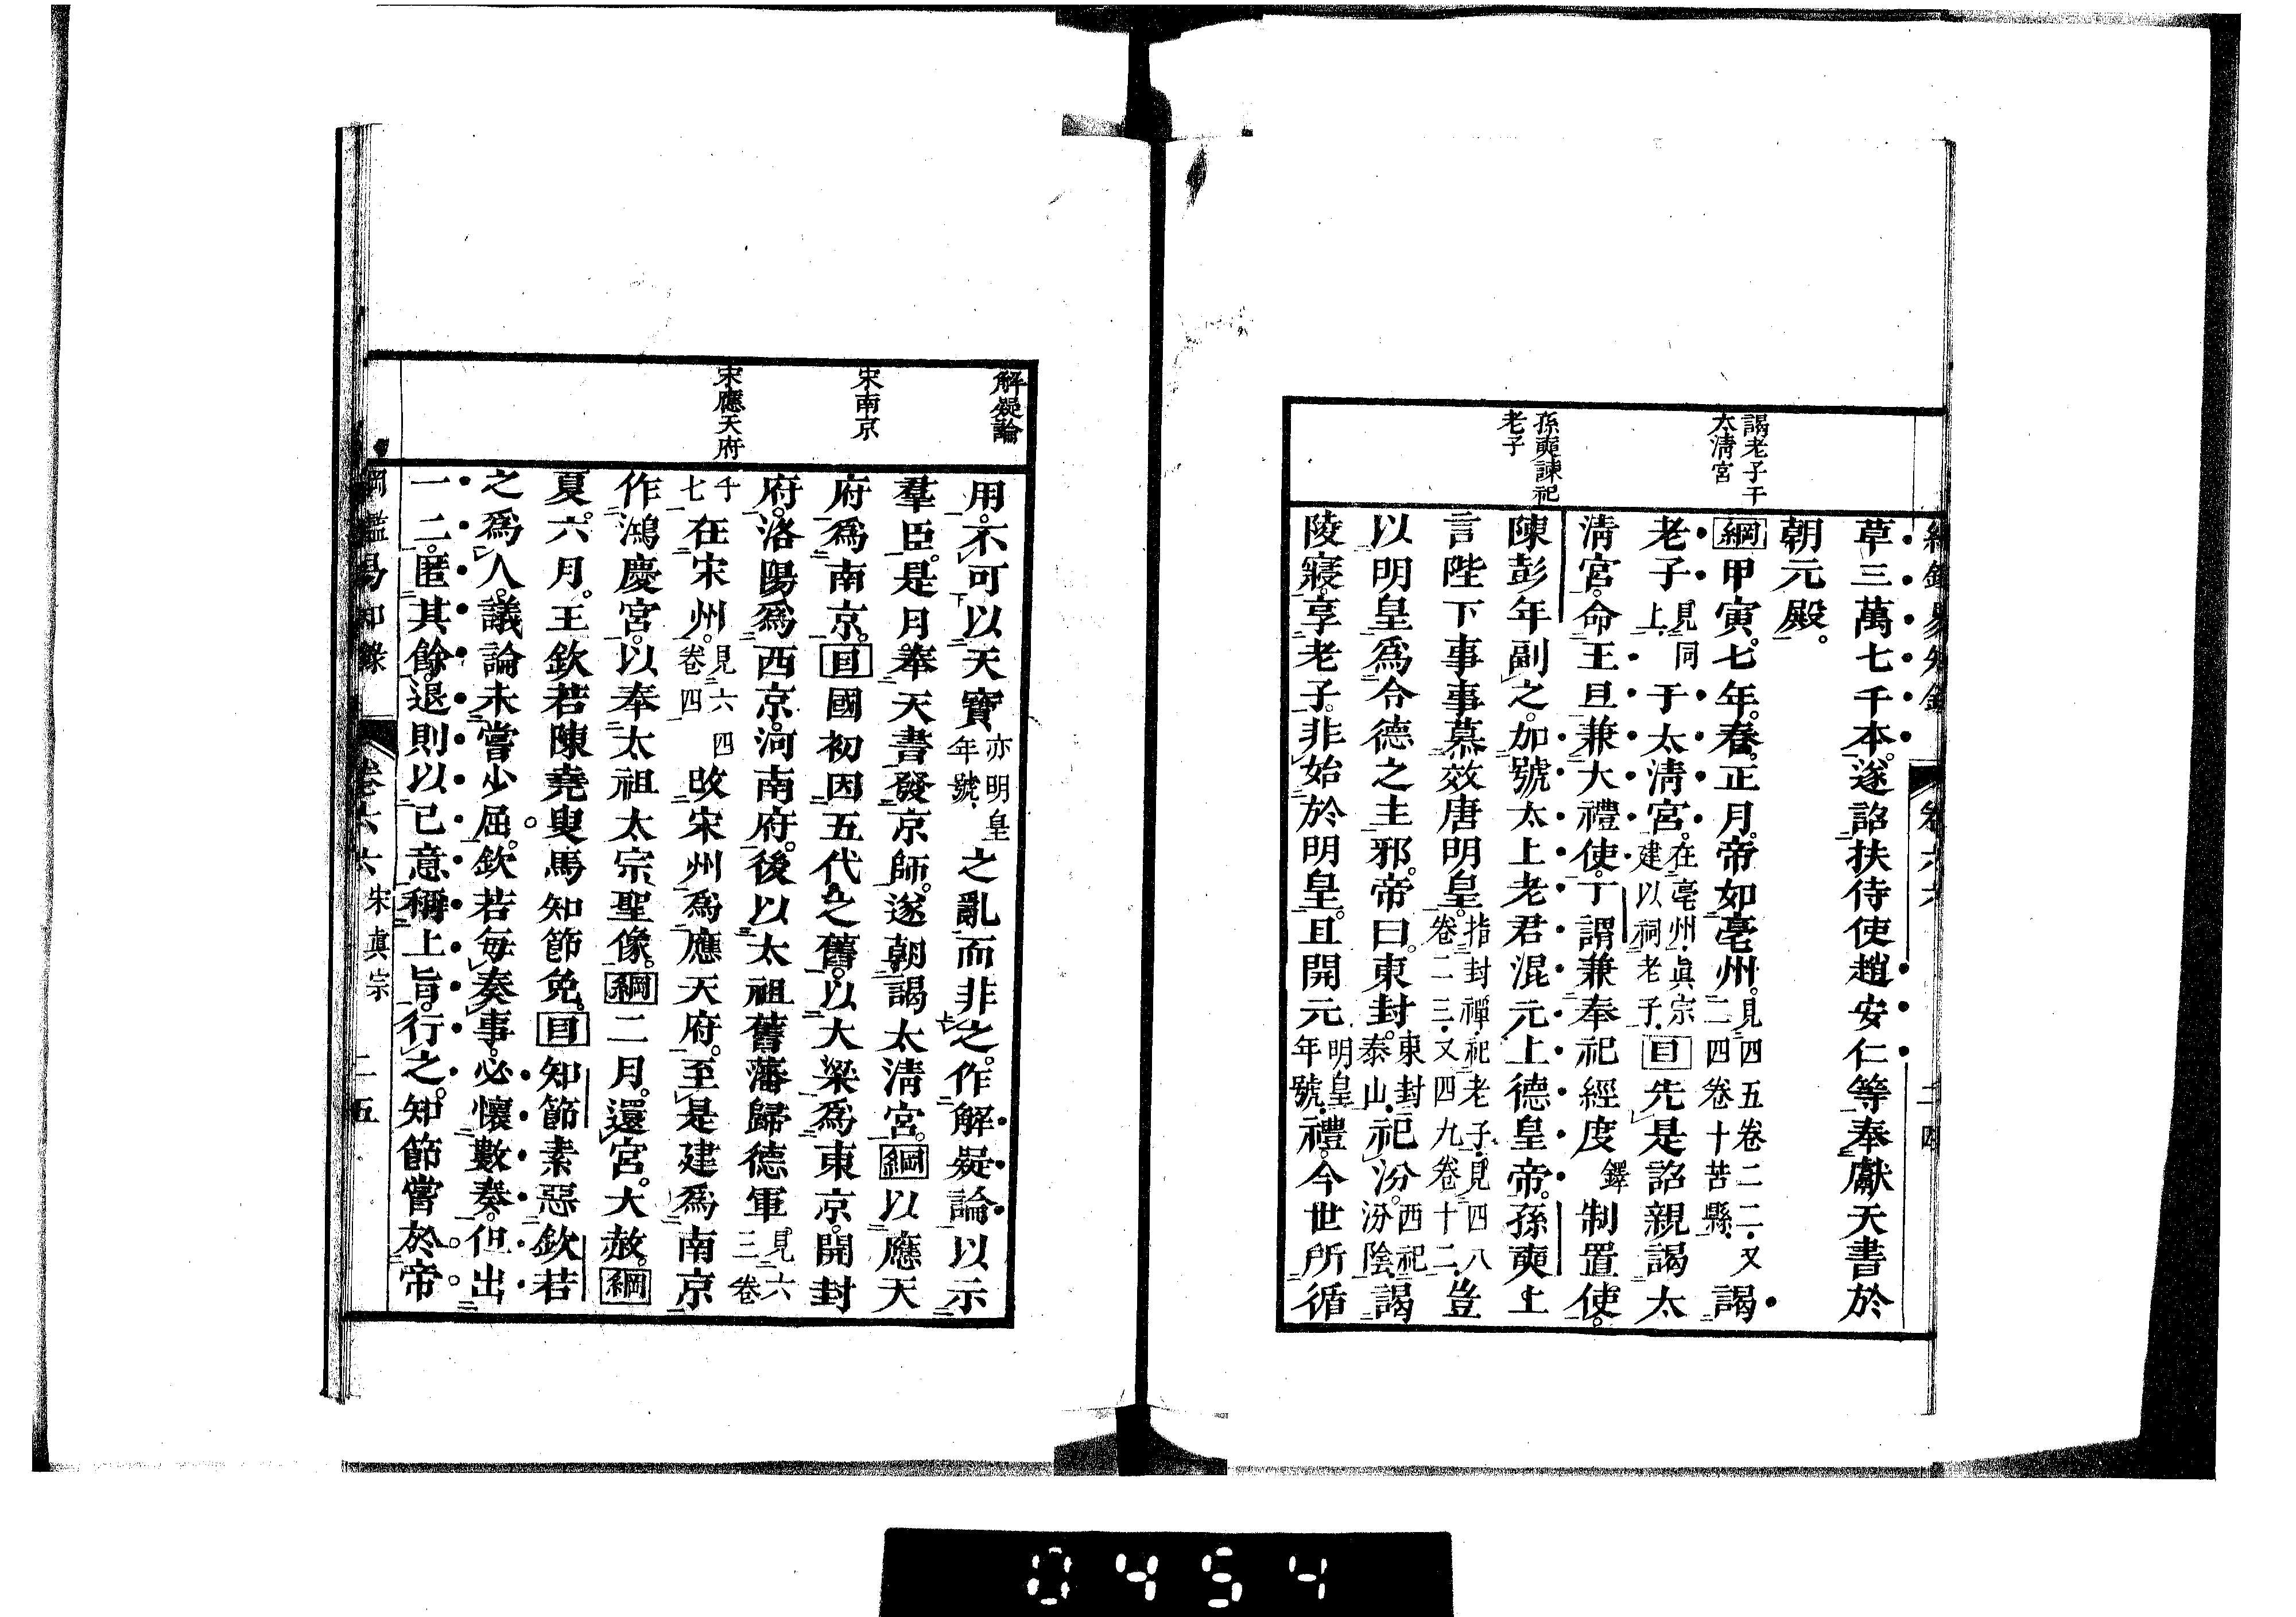 綱鑑易知錄 卷六六 二四
謁老子于
太淸宮
孫奭諫祀
老子
草三萬七千本。遂詔扶侍使趙安仁等奉獻天書於
朝元殿。
綱甲寅。七年。春。正月。帝如亳州。見四五卷二二.又二四卷十苦縣.謁
老子見同上.于太淸宮。在亳州.眞宗建以祠老子.目先是詔親謁太
淸宮。命王旦兼大禮使。丁謂兼奉祀經度鐸制置使。
陳彭年副之。加號太上老君混元上德皇帝。孫奭上
言陛下事事慕效唐明皇。指封禪.祀老子.見四八卷二三.又四九卷十二.豈
以明皇爲令德之主邪。帝曰。東封。東封泰山.祀汾。西祀汾陰.謁
陵寢。享老子。非始於明皇。且開元明皇年號.禮。今世所循
解疑論
宋南京
宋應天府
用。不可以天寶亦明皇年號.之亂而非之。作解疑論以示
羣臣。是月奉天書發京師。遂朝謁太淸宮。綱以應天
府爲南京。目國初因五代之舊。以大梁爲東京。開封
府。洛陽爲西京。河南府。後以太祖舊藩歸德軍。見六三卷
十七在宋州。見六四卷四改宋州爲應天府。至是建爲南京
作鴻慶宮。以奉太祖太宗聖像。綱二月。還宮。大赦。綱
夏。六月。王欽若陳堯叟馬知節免。目知節素惡欽若
之爲人。議論未嘗少屈。欽若每奏事。必懷數奏。但出
一二。匿其餘。退則以已意稱上旨。行之。知節嘗於帝
綱鑑易知錄 卷六六 宋眞宗 二五
0454